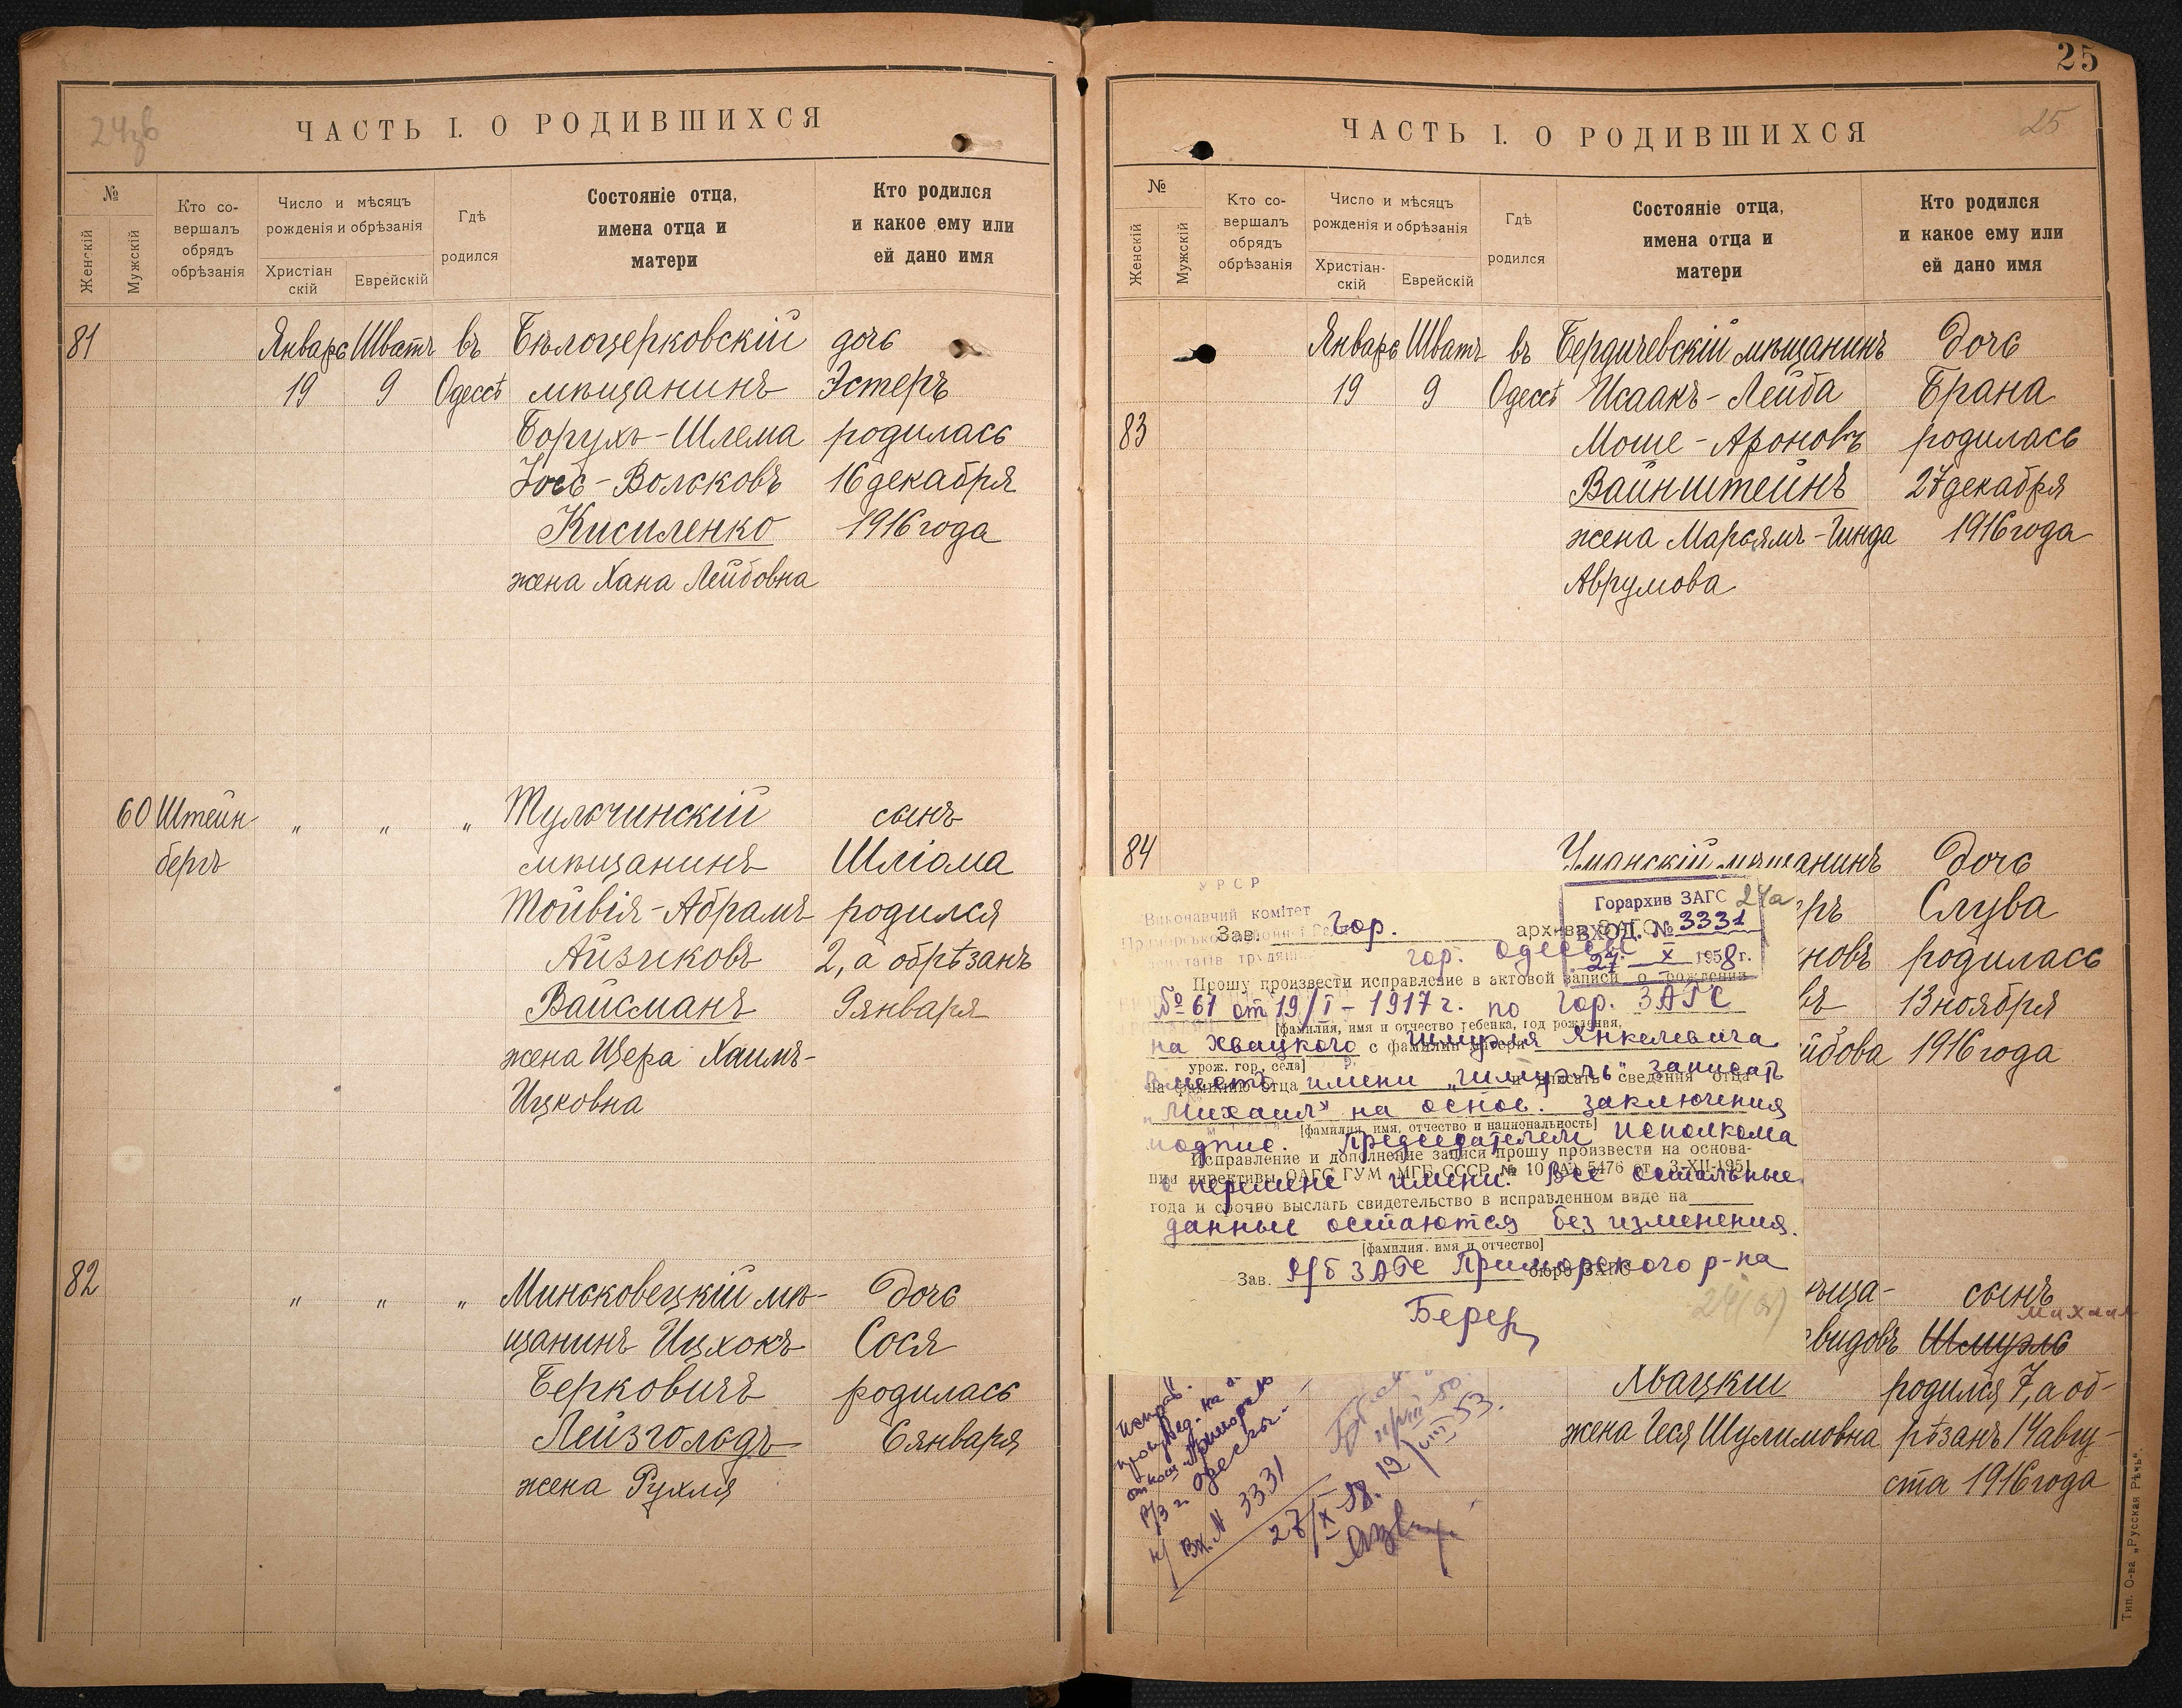 24зв
ЧАСТЬ I. О РОДИВШИХСЯ
№
Женскій
Мужскій
Кто со-
вершалъ
обрядъ
обрѣзанія
Число и мѣсяцъ
рожденія и обрѣзанія
Христіан
скій
Еврейскій
Гдѣ
родился
Состояніе отца,
имена отца и
матери
Кто родился
и какое ему или
ей дано имя
81 Январь Шватъ въ Бѣлоцерковскій дочь
19 9 Одессѣ мѣщанинъ Эстеръ
Борухъ-Шлема родилась
Іось-Вольковъ 16 декабря
Кисиленко 1916 года
жена Хана Лейбовна
60 Штейн „ „ „ Тульчинскій сынъ
бергъ мѣщанинъ Шліома
Тойвія-Абрамъ родился
Айзиковъ 2, а обрѣзанъ
Вайсманъ 9 января
жена Щера Хаимъ-
Ицковна
82 „ „ „ Миньковецкій мѣ- дочь
щанинъ Ицхокъ Сося
Берковичъ родилась
Лейзгольдъ 6 января
жена Рухля
25
25
ЧАСТЬ I. О РОДИВШИХСЯ
№
Женскій
Мужскій
Кто со-
вершалъ
обрядъ
обрѣзанія
Число и мѣсяцъ
рожденія и обрѣзанія
Христіан-
скій
Еврейскій
Гдѣ
родился
Состояніе отца,
имена отца и
матери
Кто родился
и какое ему или
ей дано имя
Январь Шватъ въ Бердичевскій мѣщанинъ дочь
19 9 Одессѣ Исаакъ-Лейба Брана
83 Моше-Ароновъ родилась
Вайнштейнъ 27 декабря
жена Марьямъ-Гинда 1916 года
Аврумова
84 Уманскій мѣщанинъ дочь
ръ Слува
новъ родилась
въ 13 ноября
йбова 1916 года
УРСР
Виконавчий комітет
Горархив ЗАГС 24а
ВХОД. № 3331
27 X 1958 г.
Зав. Гор. архива ЗАГС
гор. Одессы
Прошу произвести исправление в актовой записи о рождении
№ 61 от 19/I-1917 г. по Гор. ЗАГС
[фамилия, имя и отчество ребенка, год рождения,
на Хвацкого с фамилии матери Шмуэля Янкелевича
урож. гор, села]
на фамилию отца и вписать сведения отца
вместо имени „Шмуэль" записать
„Михаил" на основ. заключения
[фамилия, имя, отчество и национальность]
подпис. Председателем исполкома
Исправление и дополнение записи прошу произвести на основа-
нии директивы ОАГС ГУМ МГБ СССР № 10 5476 от 3-XII-1951
о перемене имени. Все остальные
года и срочно выслать свидетельство в исправленном виде на
данные остаются без изменения.
[фамилия, имя и отчество]
Зав. Р/б ЗАГС Приморского р-на
бюро ЗАГС
Берег
ѣща- сынъ
Михаил
видовъ Шмуэль
Хвацкій родился 7, а об-
жена Геся Шулимовна рѣзанъ 14 авгу-
ста 1916 года
Вх. № 3331
27/X-58.
12/VIII 53.
Тип. О-ва „Русская Рѣчь".